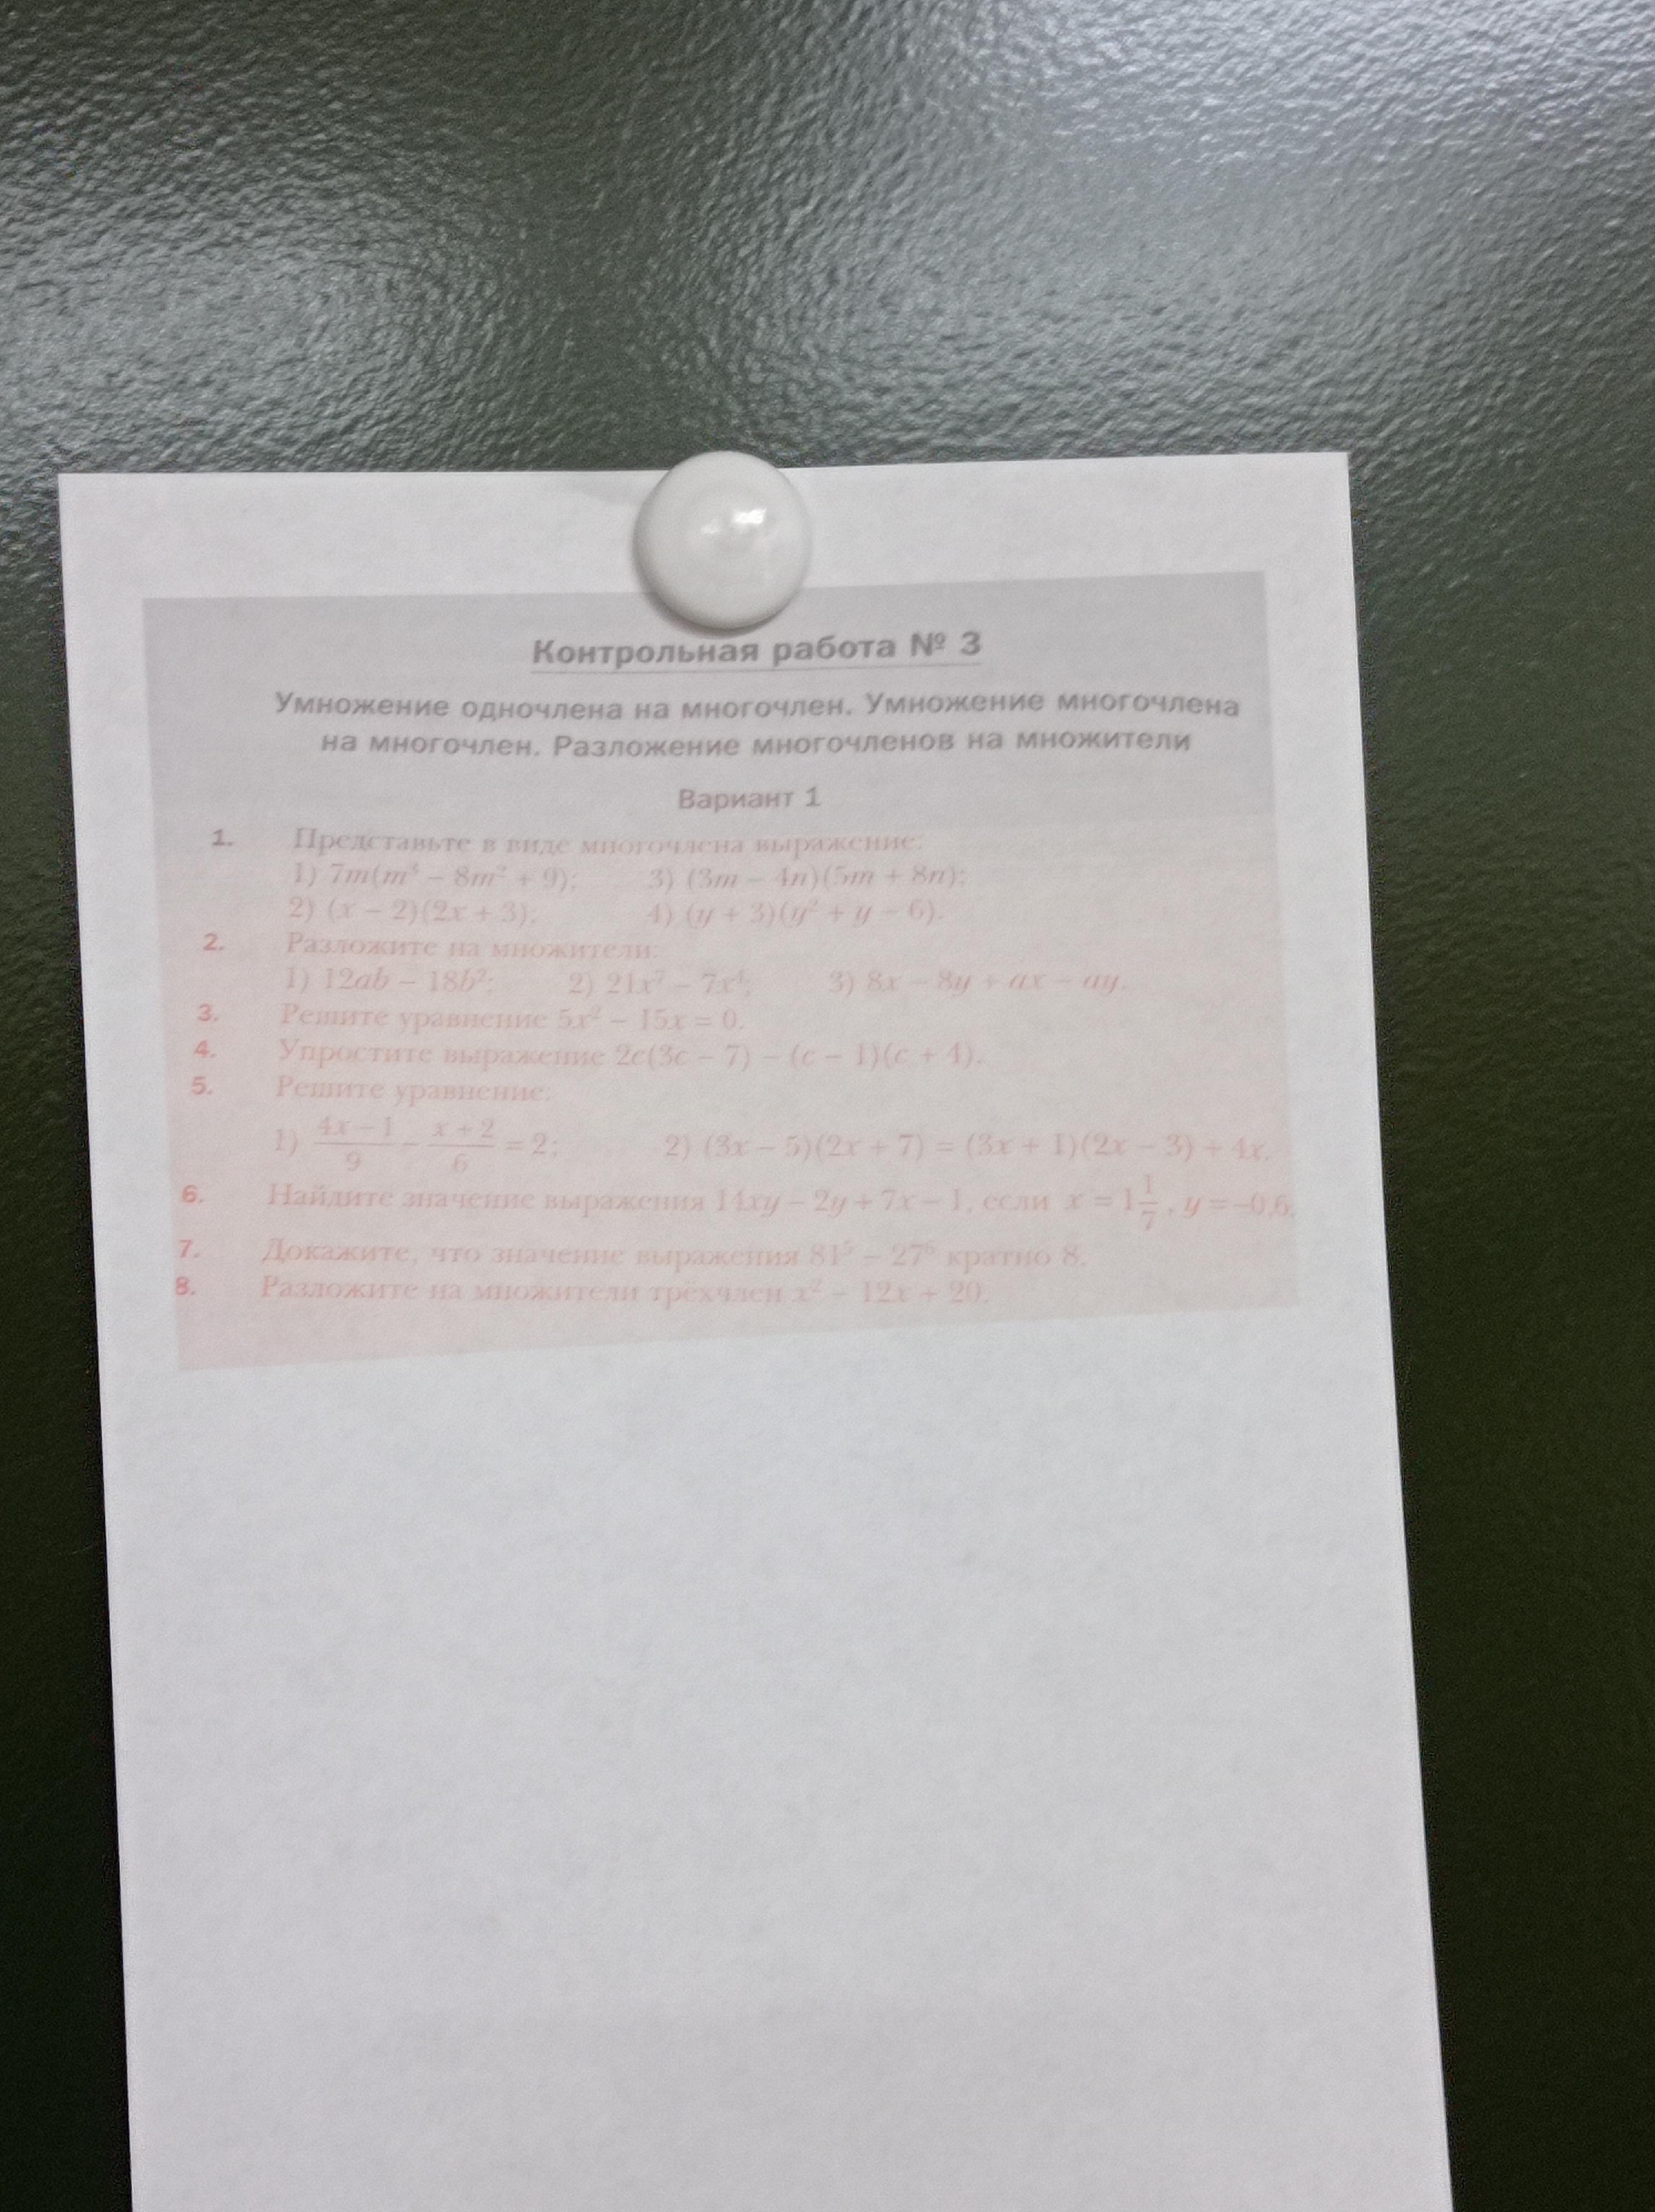 Контрольная работа № 3
Умножение одночлена на многочлен. Умножение многочлена
на многочлен. Разложение многочленов на множители
Вариант 1
1. Представьте в виде многочлена выражение:
1) 7m(m³ – 8m² + 9); 3) (3m – 4n)(5m + 8n);
2) (x – 2)(2x + 3); 4) (y + 3)(y² + y – 6).
2. Разложите на множители:
1) 12ab – 18b²; 2) 21x⁷ – 7x⁴; 3) 8x – 8y + ax – ay.
3. Решите уравнение 5x² – 15x = 0.
4. Упростите выражение 2c(3c – 7) – (c – 1)(c + 4).
5. Решите уравнение:
1) (4x – 1)/9 – (x + 2)/6 = 2; 2) (3x – 5)(2x + 7) = (3x + 1)(2x – 3) + 4x.
6. Найдите значение выражения 14xy – 2y + 7x – 1, если x = 1 1/7, y = –0,6.
7. Докажите, что значение выражения 81⁵ – 27⁶ кратно 8.
8. Разложите на множители трёхчлен x² – 12x + 20.